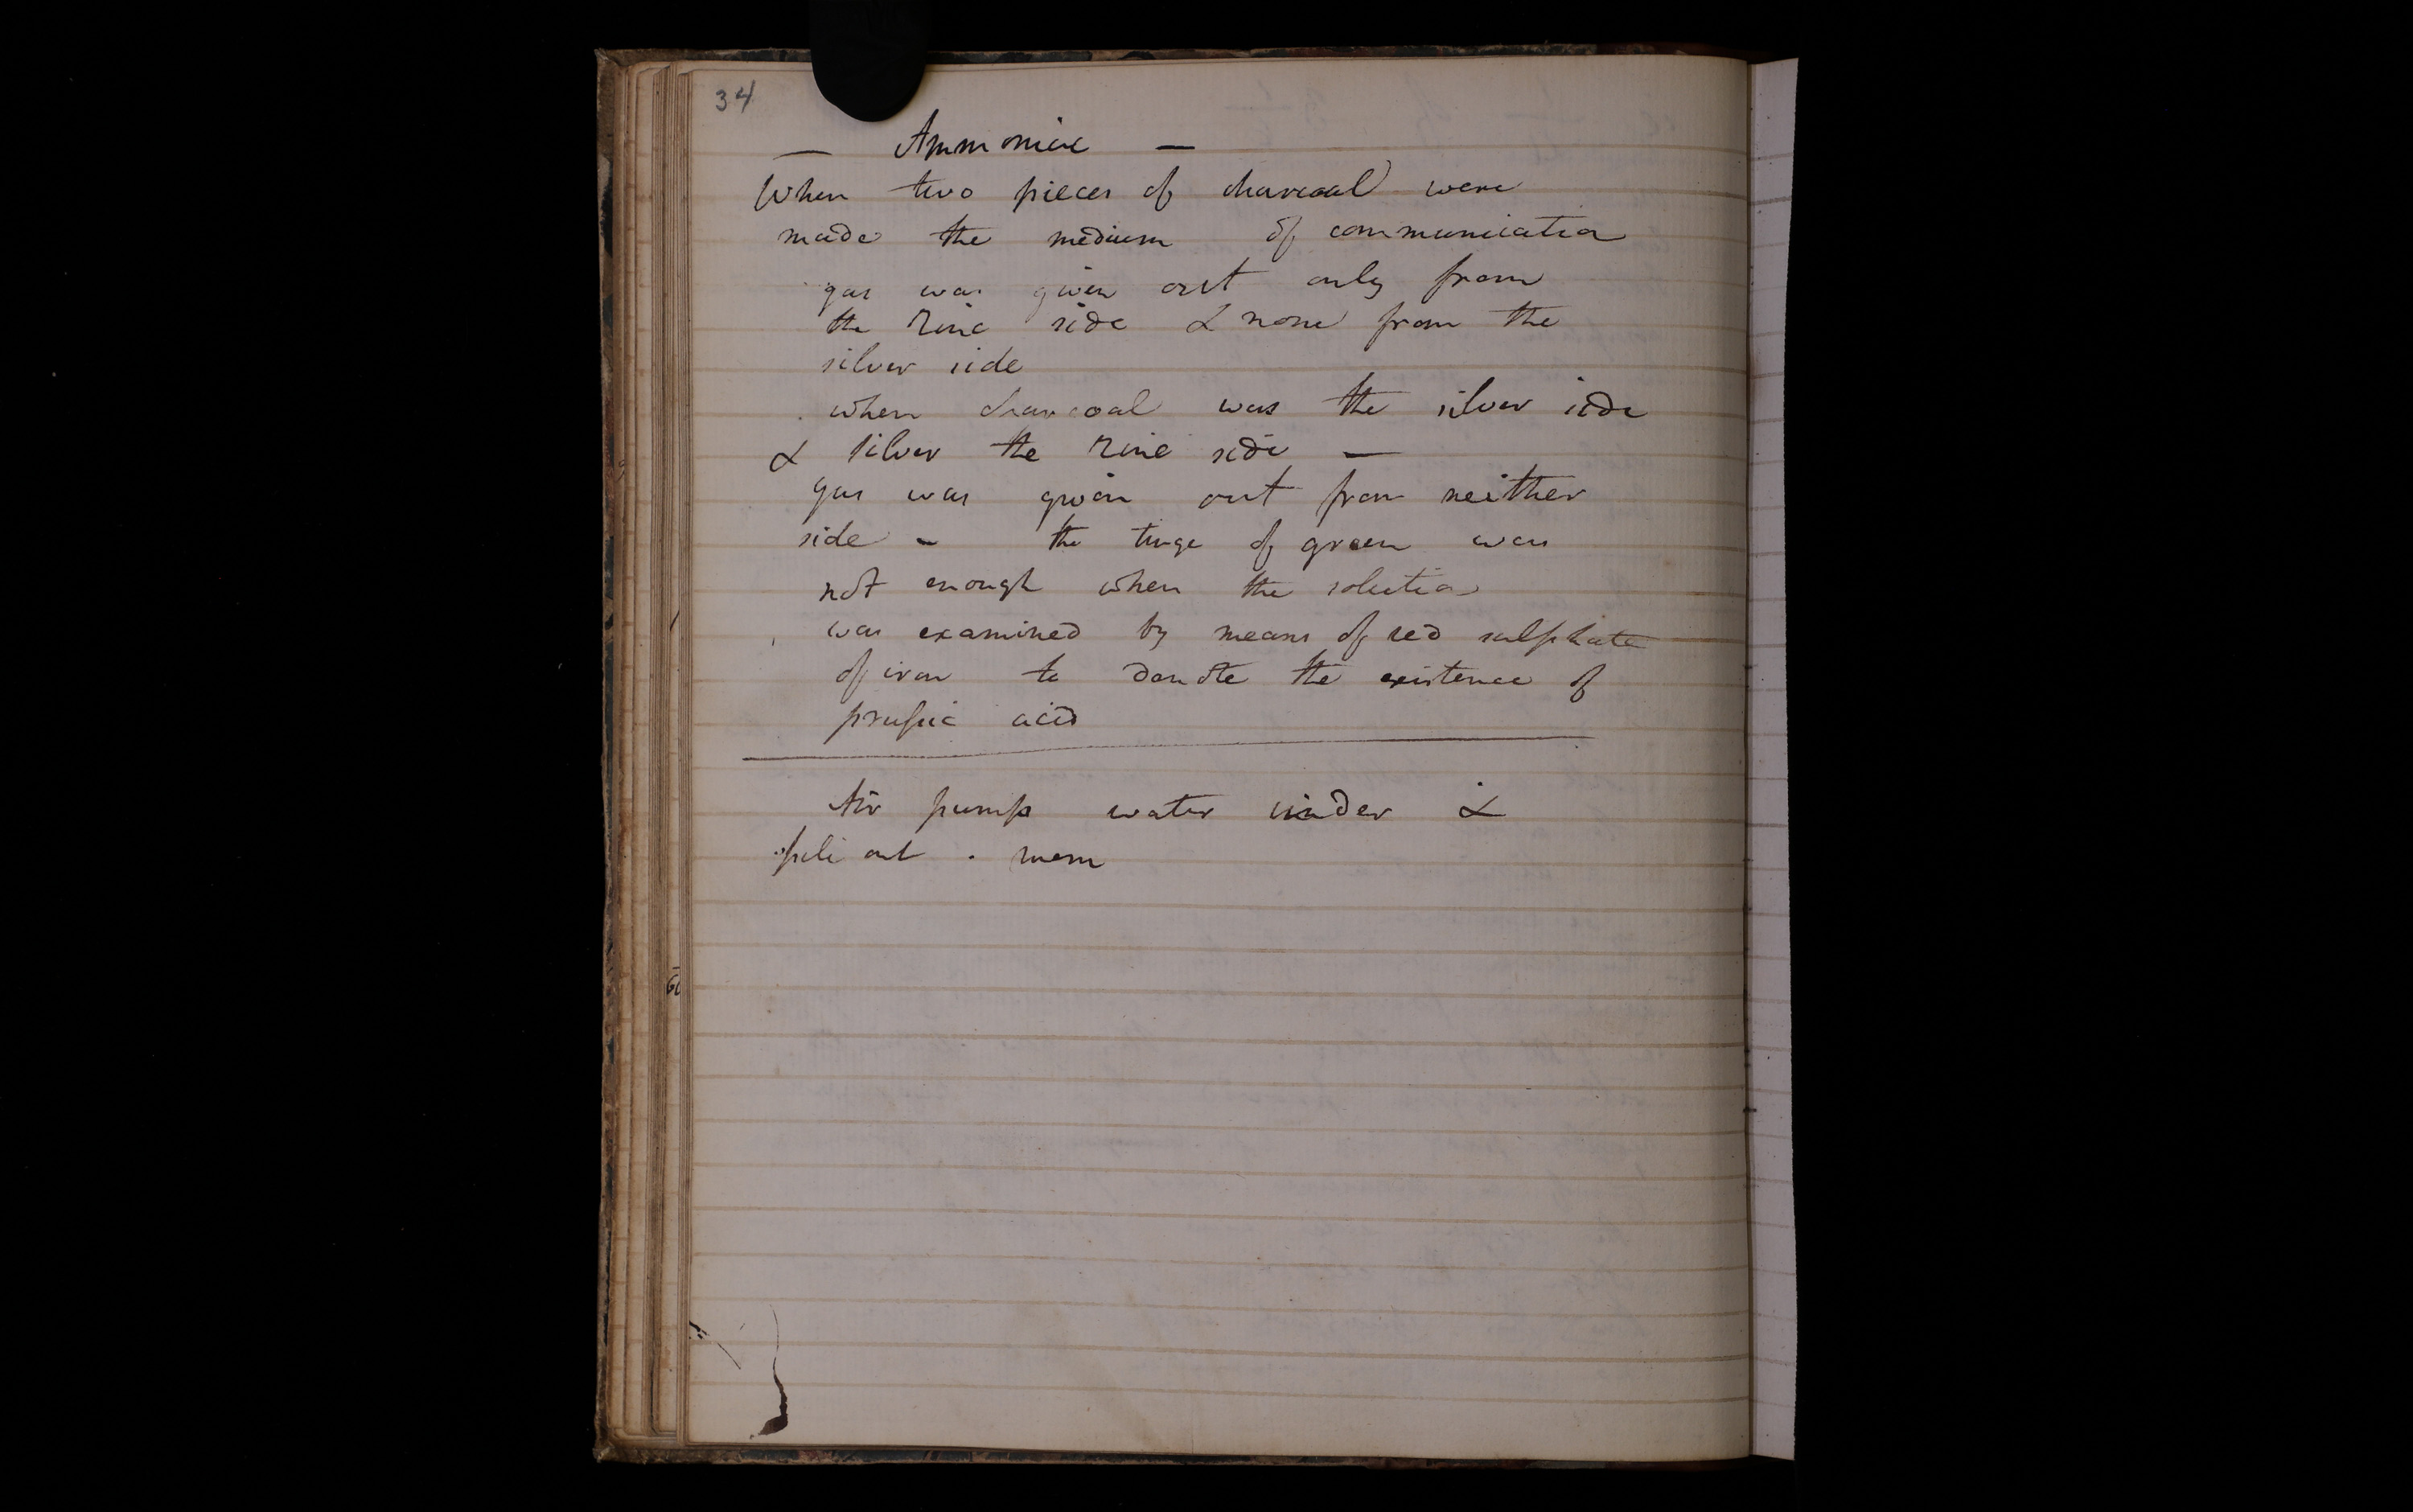 34
— Ammoniac —
When two pieces of charcoal were
made the medium of communication
gas was given out only from
the Zinc side & none from the
silver side
when charcoal was the silver side
& silver the Zinc side —
gas was given out from neither
side – the tinge of green was
not enough when the solution
was examined by means of red sulphate
of iron to denote the existence of
prussic acid
Air pump water under &
pile out . mem